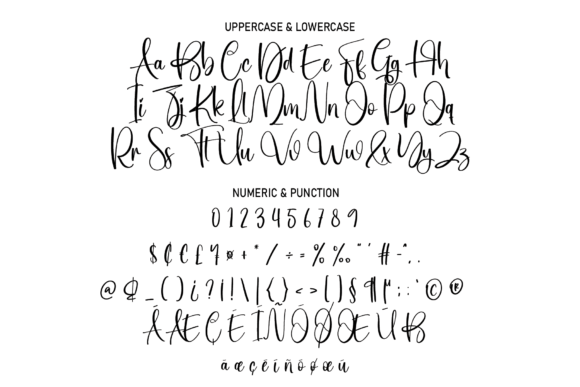 UPPERCASE & LOWERCASE
Aa Bb Cc Dd Ee Ff Gg Hh
Ii Jj Kk Ll Mm Nn Oo Pp Qq
Rr Ss Tt Uu Vv Ww Xx Yy Zz
NUMERIC & PUNCTION
0 1 2 3 4 5 6 7 8 9
$ ₵ € £ ¥ ¤ + * / ÷ = % ‰ " ' # - ^ , .
@ & _ ( ) ¿ ? ! ! \ | { } < > [ ] § ¶ : ; ' © ®
Á Æ Ç É Í Ñ Ó Ø Œ Ú ß
á æ ç é í ñ ó ø œ ú